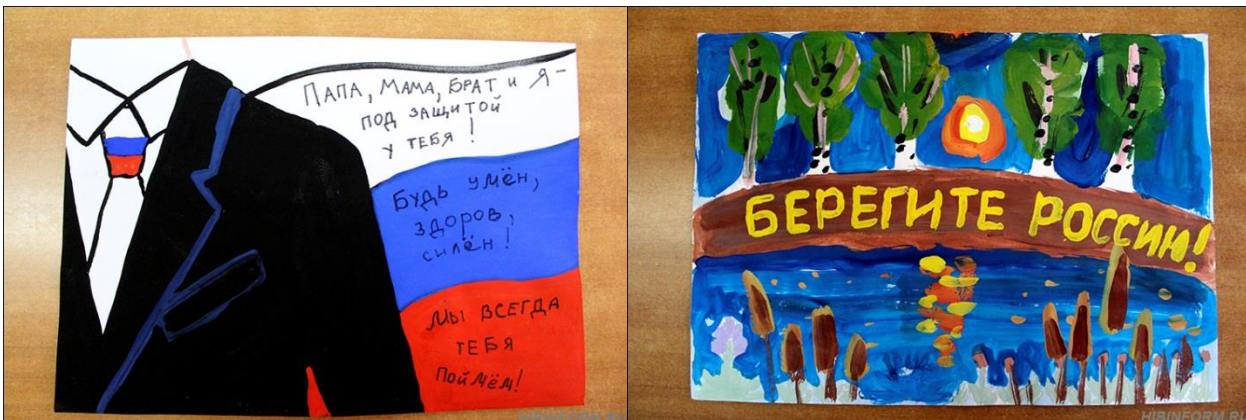 Папа, Мама, Брат и Я –
под защитой
у тебя!
Будь умён,
здоров,
силён!
Мы всегда
тебя
поймём!
БЕРЕГИТЕ РОССИЮ!
HIBINFORM.RU
HIBINFORM.RU